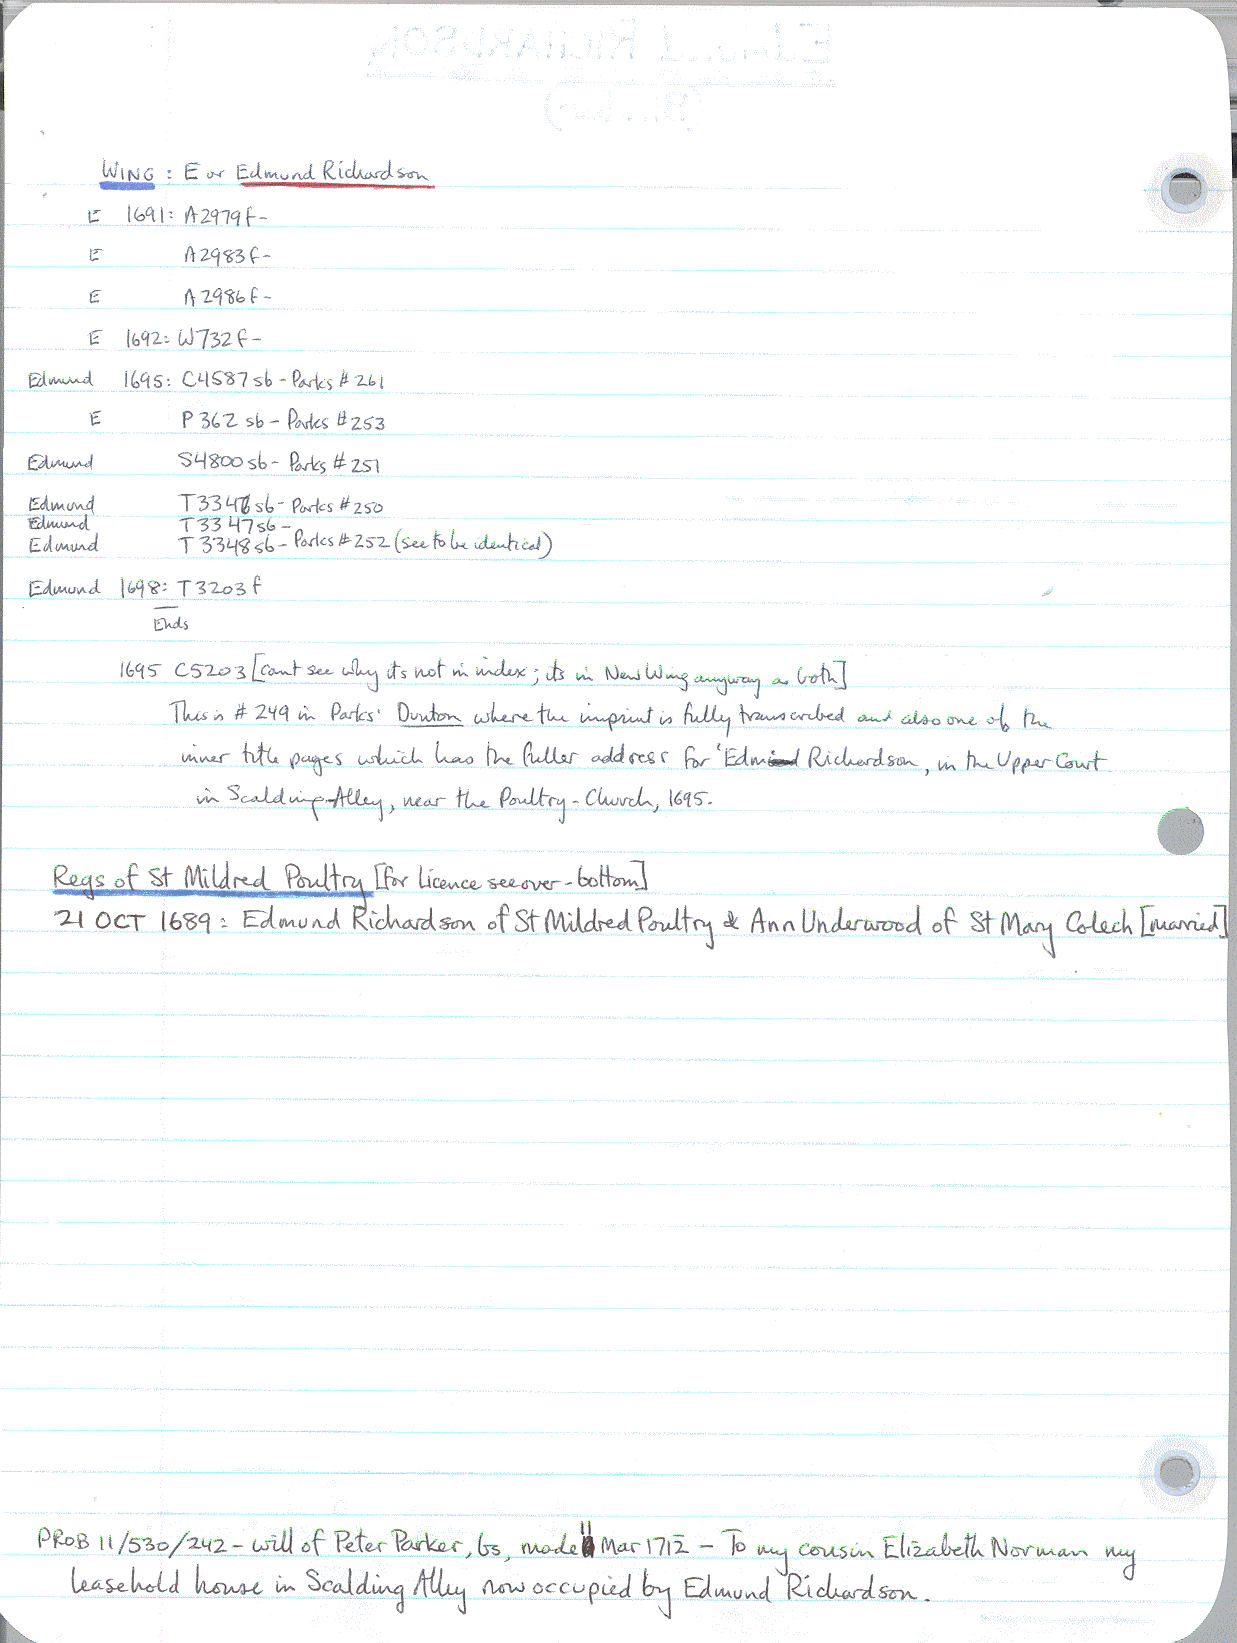 WING : E or Edmund Richardson
E 1691: A2979f-
E A2983f-
E A2986f-
E 1692: W732f-
Edmund 1695: C4587sb - Parks # 261
E P362sb - Parks # 253
Edmund S4800sb - Parks # 251
Edmund T3346sb - Parks # 250
Edmund T3347sb -
Edmund T3348sb - Parks # 252 (see to be identical)
Edmund 1698: T3203f
Ends
1695 C5203 [cant see why its not in index; its in New Wing anyway as both]
This is # 249 in Parks' Dunton where the imprint is fully transcribed and also one of the
inner title pages which has the fuller address for 'Edm Richardson, in the Upper Court
in Scalding-Alley, near the Poultry-Church, 1695.
Regs of St Mildred Poultry [for Licence see over - bottom]
21 OCT 1689: Edmund Richardson of St Mildred Poultry & Ann Underwood of St Mary Colech [married]
PROB 11/530/242 - will of Peter Parker, bs, made 11 Mar 1712 - To my cousin Elizabeth Norman my
leasehold house in Scalding Alley now occupied by Edmund Richardson.